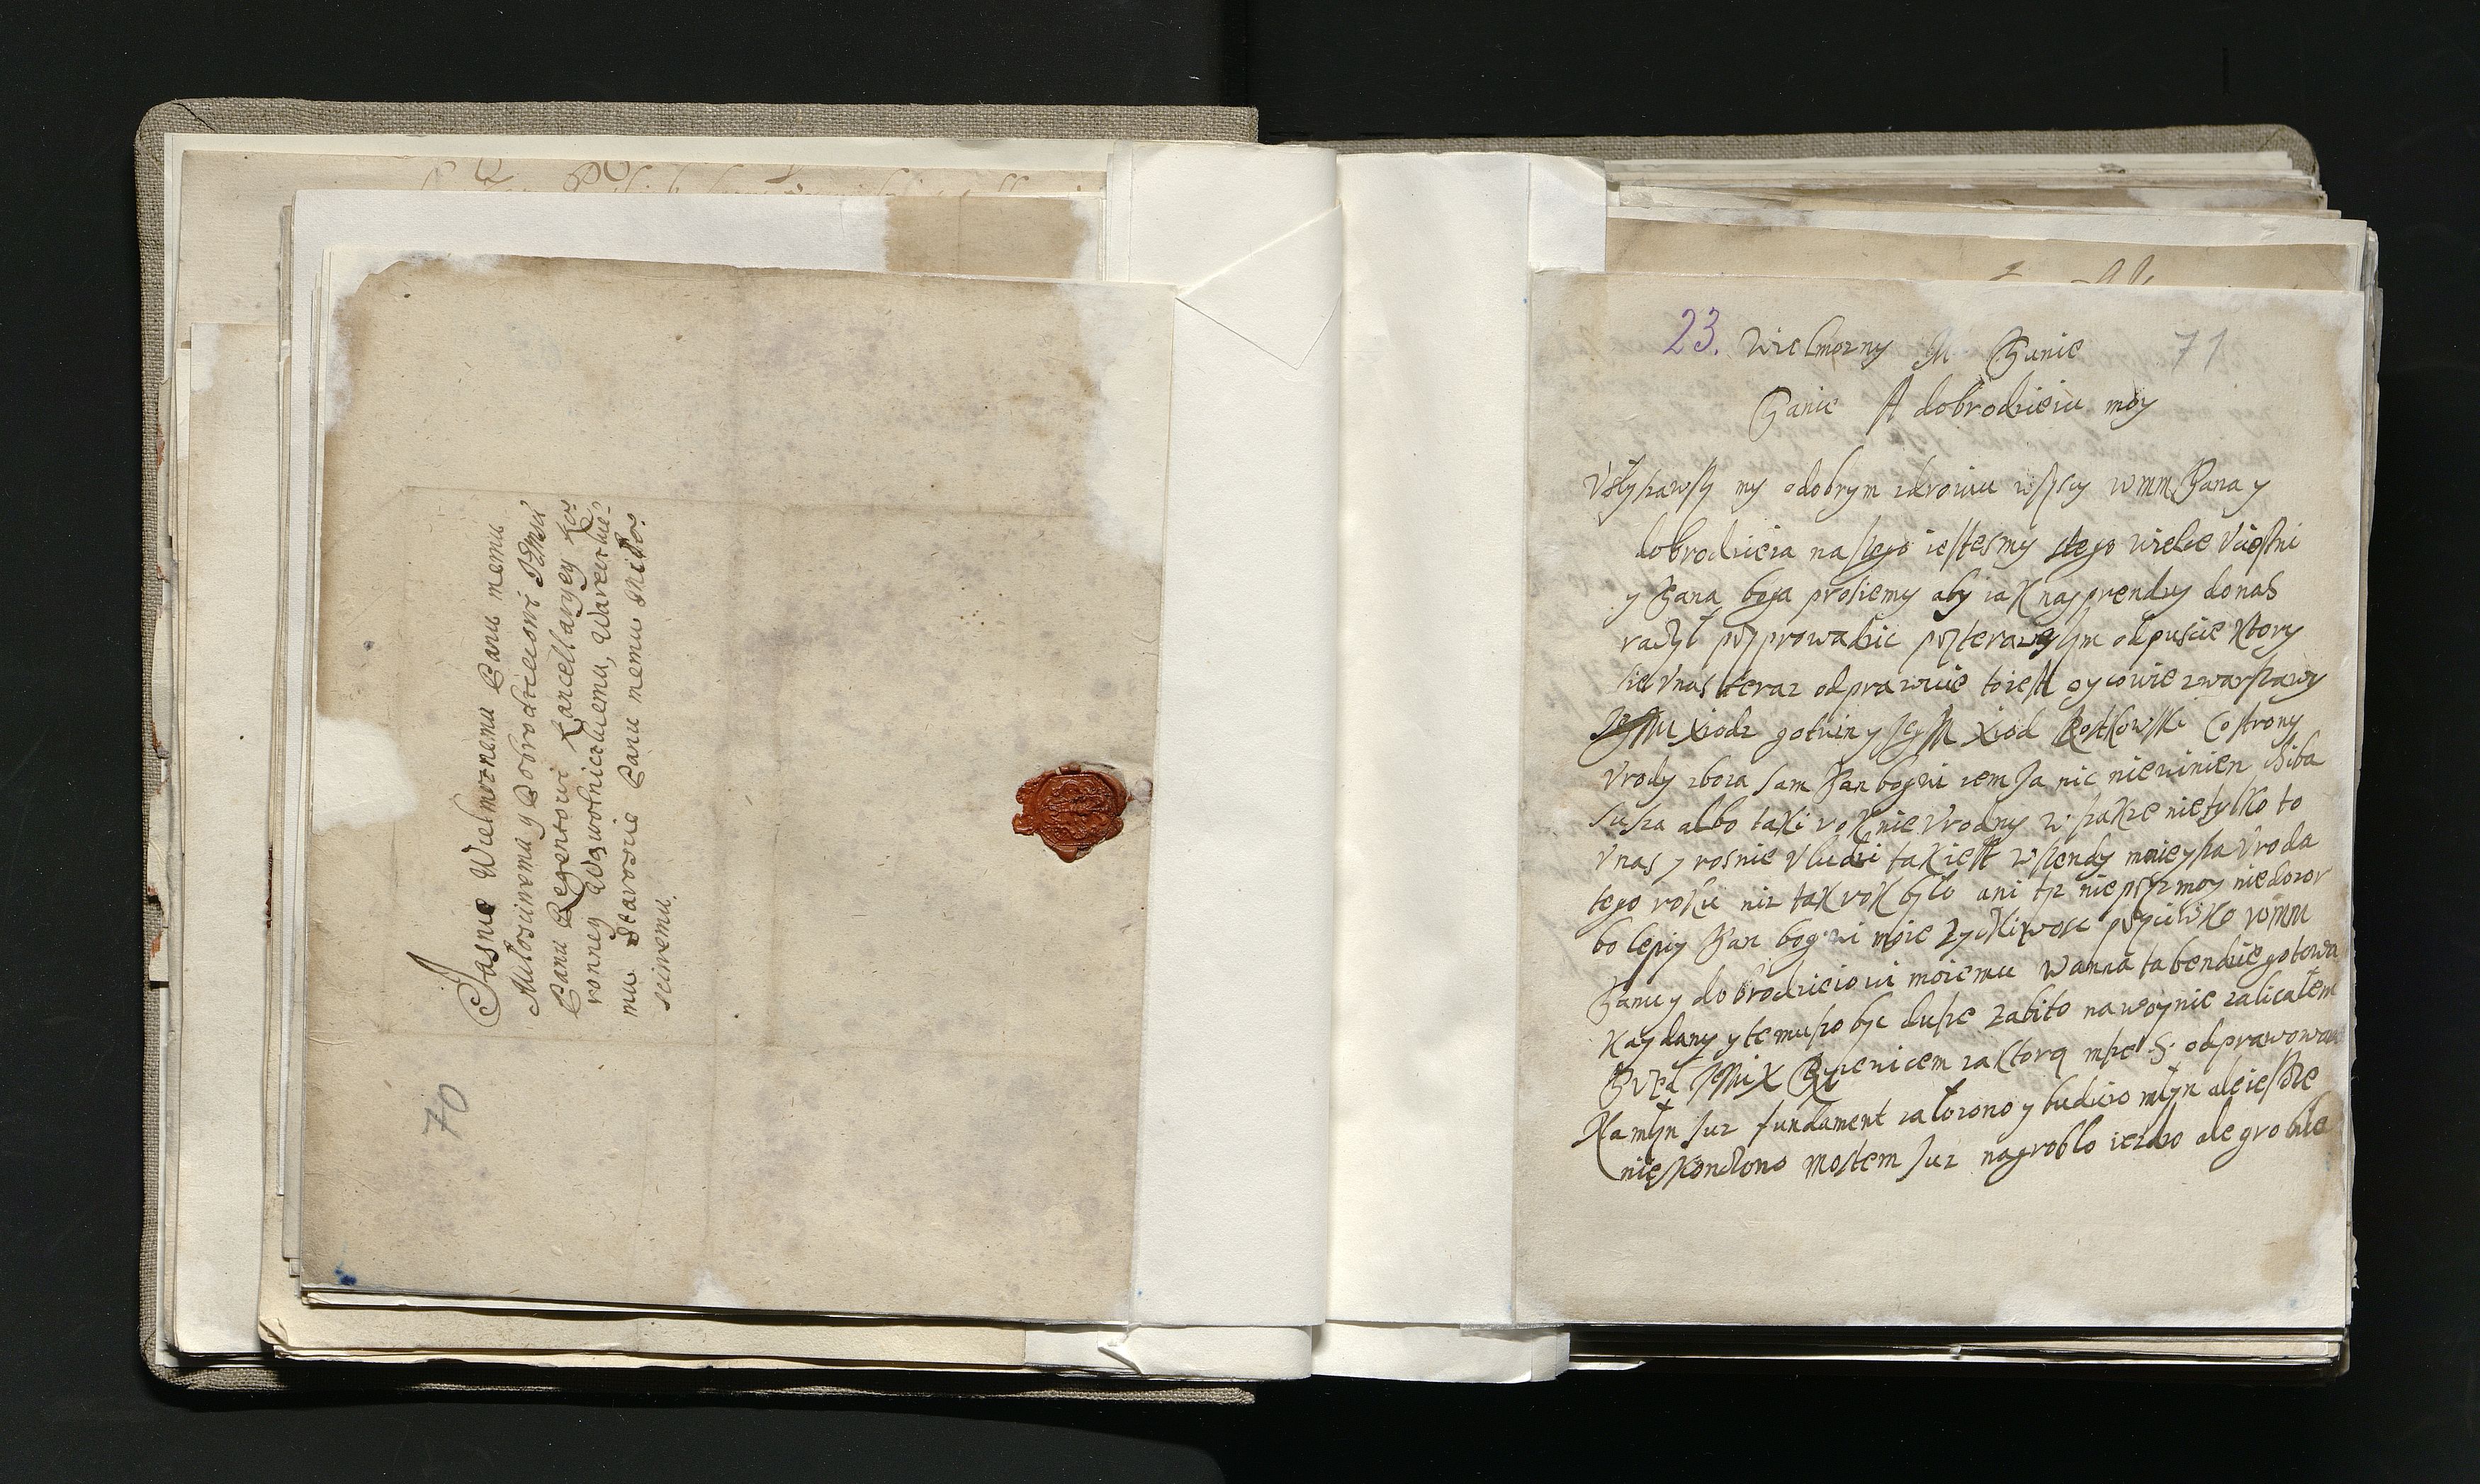 Jasnie Wielmoznemu Panu memu
Miłosciwemu y Dobrodzieiowi
Panu Regentowi Kancellaryey Ko:
ronney Wąwolnickiemu, Wareckie:
mu Staroscie Panu memu Miło:
sciwemu.
70
23. Wielmozny M Panie 71
Panie A dobrodzieiu moy
Vsłyszawszy my o dobrym zdrowiu wszyscy wmm Pana y
dobrodzieia naszego iestesmy stego wielce
y Pana boga prosiemy aby iak nayprendzy do nas
raczył przyprowadzic odpuscie ktory
sie Vnas teraz odprawuie to iest oycowie zwarszawy
xiodz y xiod co strony
Vrody zboza sam Pan bog wi zem Ja nic niewinien chiba
susza albo taki rok nie Vrodny w szakze nie tylko to
Vnas y rosnie V ludzi tak iest wszendy mnieysza Vroda
tego roku niz tak rok było ani tez niedozor
bo lepiy Pan bog wi moie zyczliwosc przyciwko wmm
Panu y dobrodzieiowi moiemu wanna ta bendzie gotowa
kaydany y temu duszo byc dusze zabito na woynie zalicałem
X za ktorą msze S. odprawowano
Na młyn Juz fundament załozono y buduio młyn ale ieszcze
nie skonczono mostem Juz na groblo iezdzo ale groble